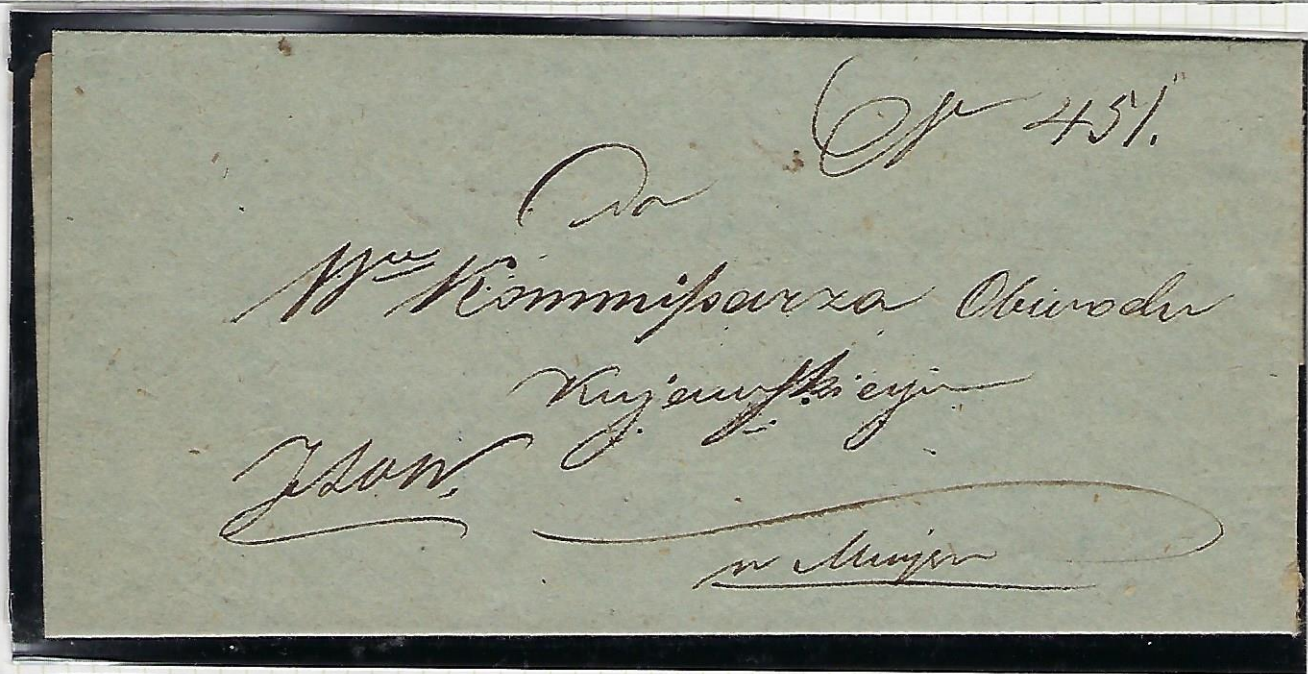 451.
Do
Wu Kommissarza Obwodu
Kujawskiego
w Miejscu